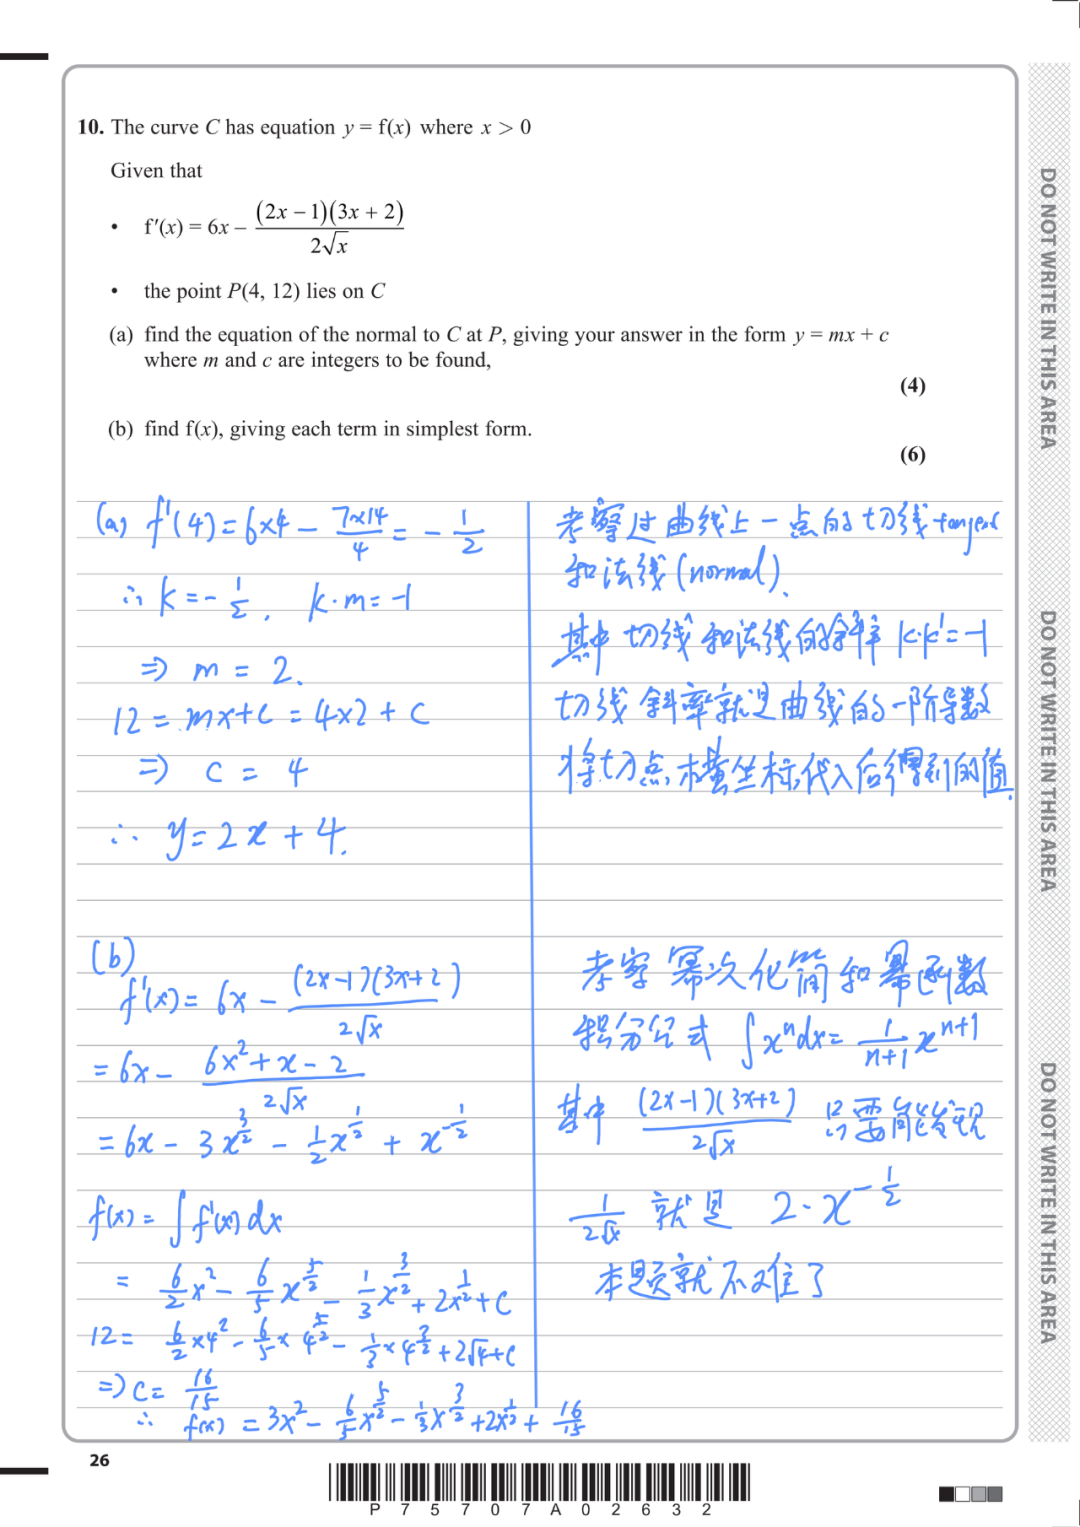 10. The curve C has equation y = f(x) where x > 0
Given that
• f′(x) = 6x − (2x − 1)(3x + 2) / 2√x
• the point P(4, 12) lies on C
(a) find the equation of the normal to C at P, giving your answer in the form y = mx + c
where m and c are integers to be found,
(4)
(b) find f(x), giving each term in simplest form.
(6)
(a) f'(4) = 6×4 − 7×14/4 = −1/2
∴ k = −1/2, k·m = −1
⇒ m = 2.
12 = mx+c = 4×2 + c
⇒ c = 4
∴ y = 2x + 4.
考察过曲线上一点的切线 tangent
和法线 (normal).
其中 切线和法线的斜率 k·k' = −1
切线斜率就是曲线的一阶导数
将切点横坐标代入后得到的值.
(b)
f'(x) = 6x − (2x−1)(3x+2) / 2√x
= 6x − 6x²+x−2 / 2√x
= 6x − 3x^(3/2) − 1/2 x^(1/2) + x^(−1/2)
f(x) = ∫ f'(x) dx
= 6/2 x² − 6/5 x^(5/2) − 1/3 x^(3/2) + 2x^(1/2) + C
12 = 6/2 ×4² − 6/5 × 4^(5/2) − 1/3 × 4^(3/2) + 2√4 + C
⇒ C = 16/15
∴ f(x) = 3x² − 6/5 x^(5/2) − 1/3 x^(3/2) + 2x^(1/2) + 16/15
考察 幂次化简和幂函数
积分公式 ∫ xⁿdx = 1/(n+1) x^(n+1)
其中 (2x−1)(3x+2) / 2√x 只要能发现
1/2√x 就是 2·x^(−1/2)
本题就不难了
DO NOT WRITE IN THIS AREA
DO NOT WRITE IN THIS AREA
DO NOT WRITE IN THIS AREA
26
P75707A02632